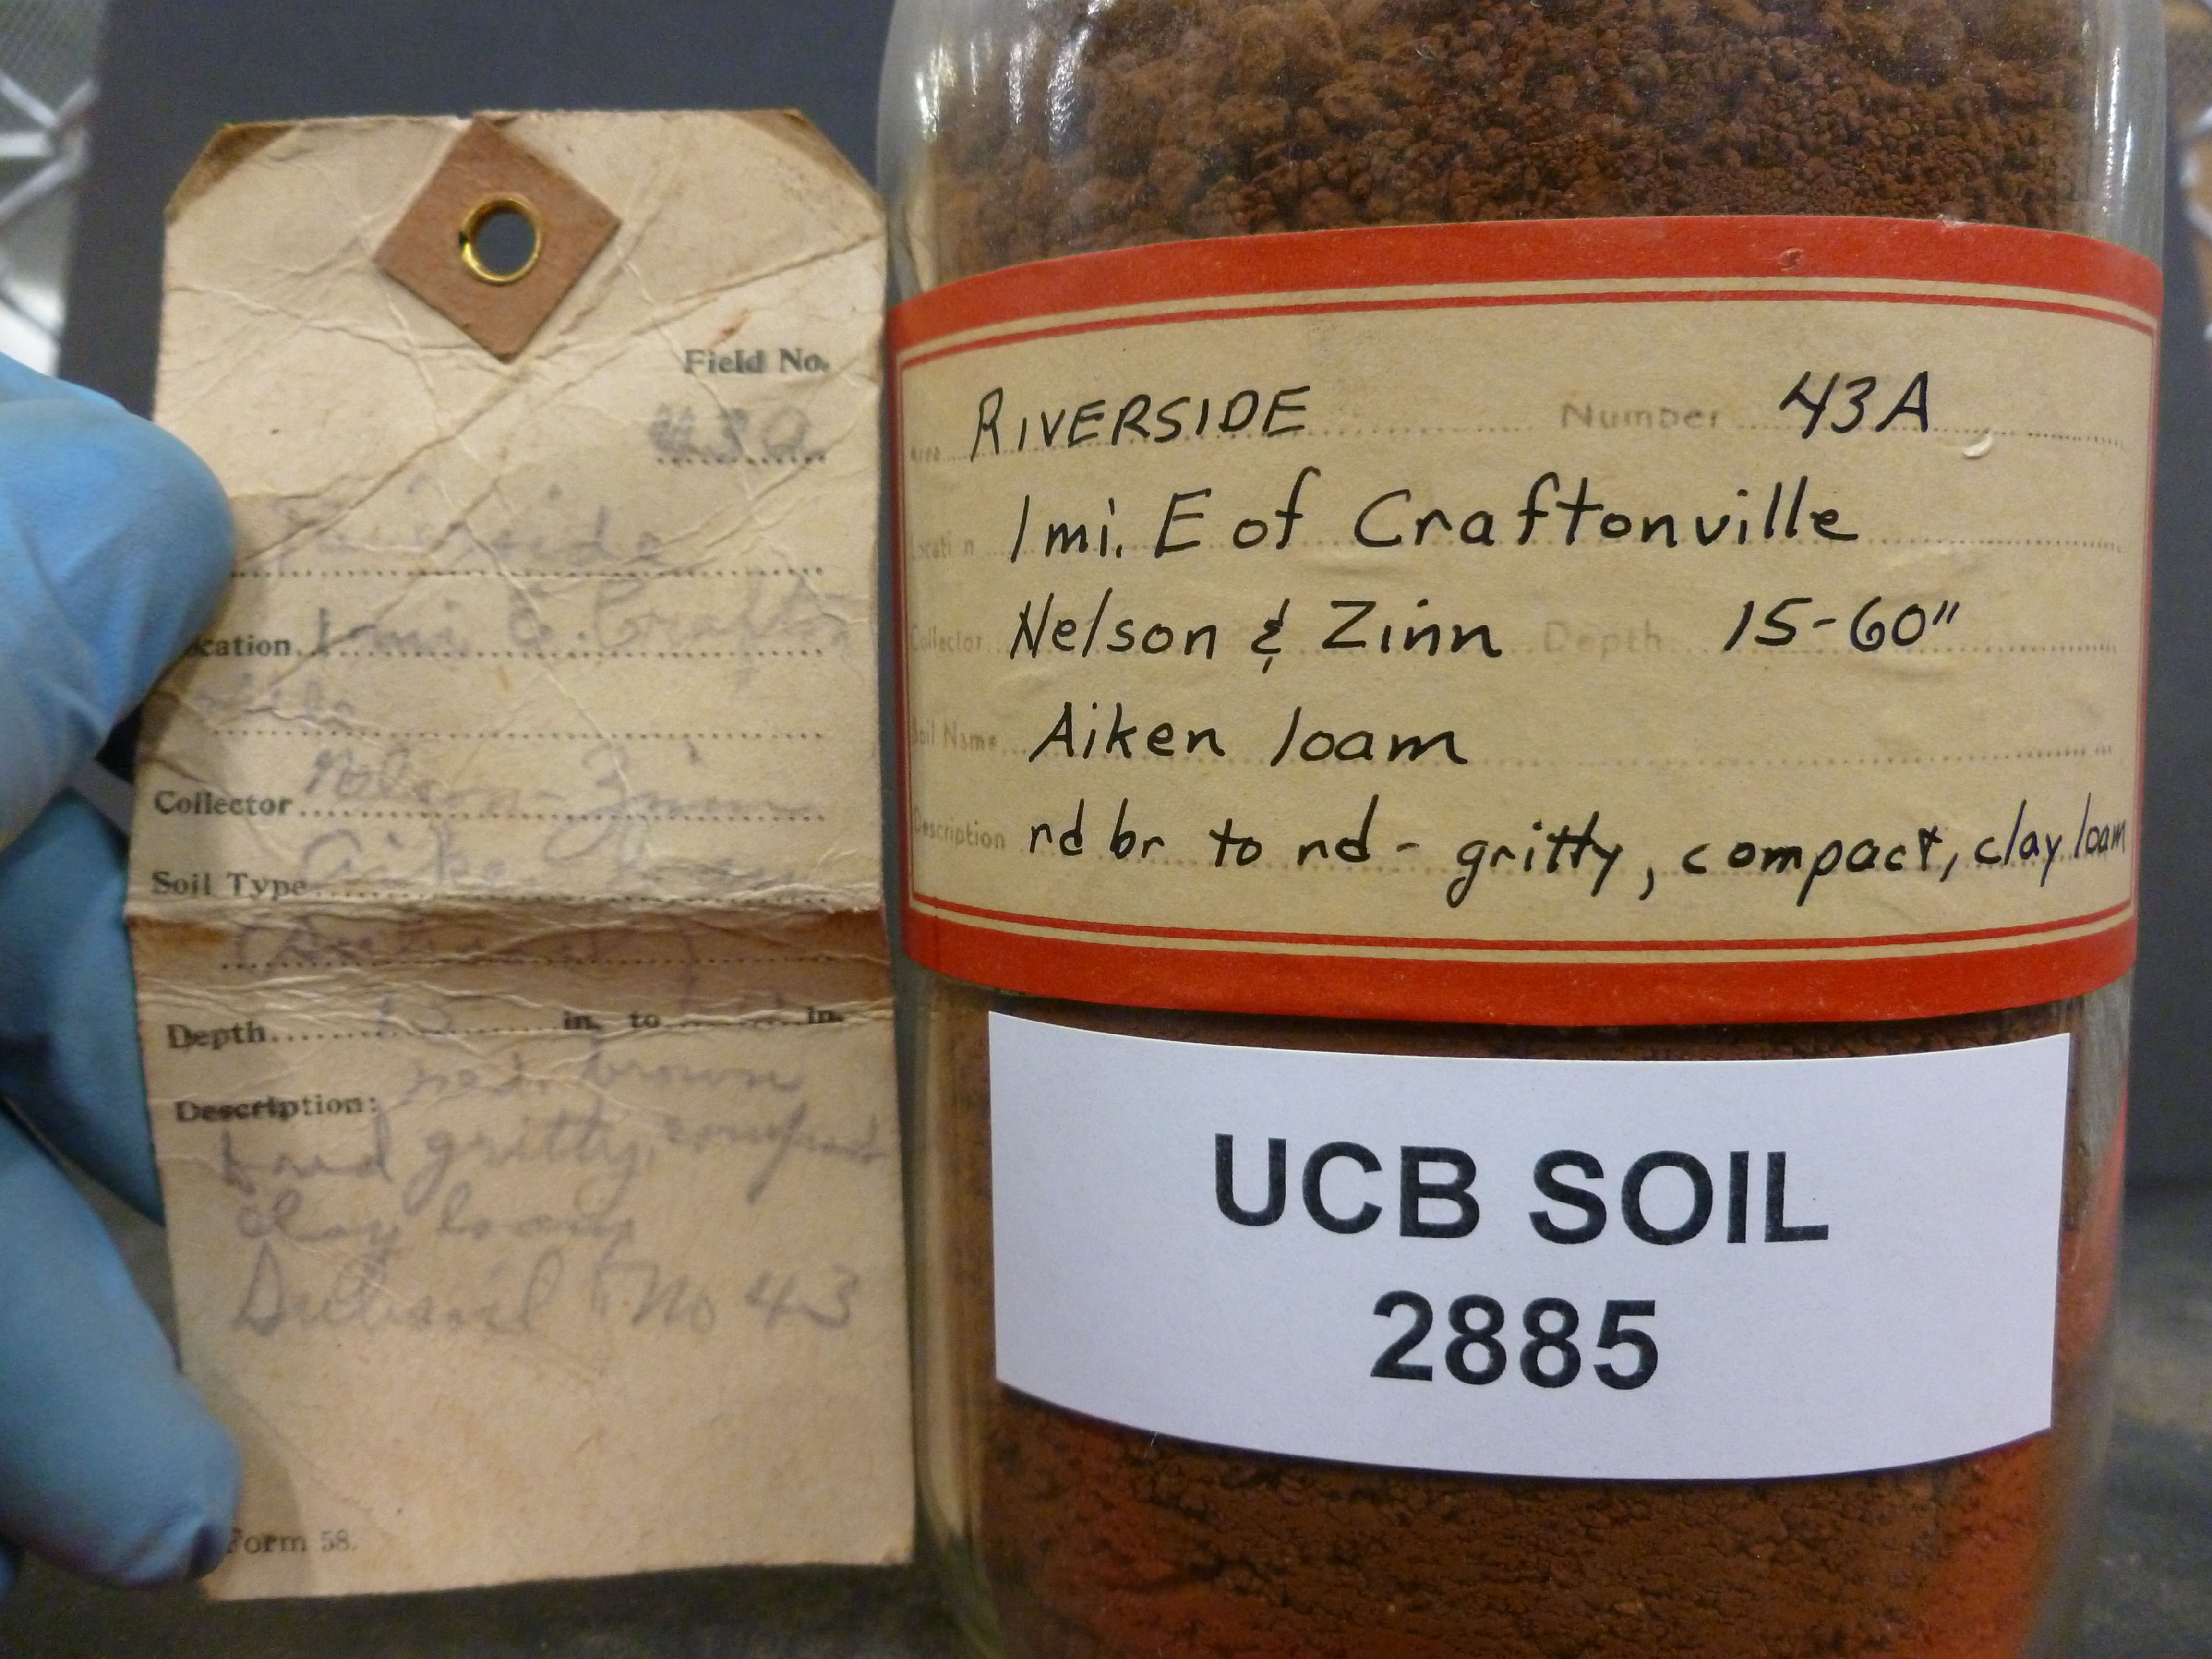 Field No.
43a
Riverside
cation 1 mi E. Crafton
ville
Collector Nelson - Zinn
Soil Type Aiken loam
Depth 15 in. to in.
Description: red. brown
hard gritty, compact
clay loam
Subsoil No 43
Form 58.
Area RIVERSIDE Number 43A
Locati n 1 mi. E of Craftonville
Collector Nelson & Zinn Depth 15-60"
Soil Name Aiken loam
Description rd br to rd - gritty, compact, clay loam
UCB SOIL
2885